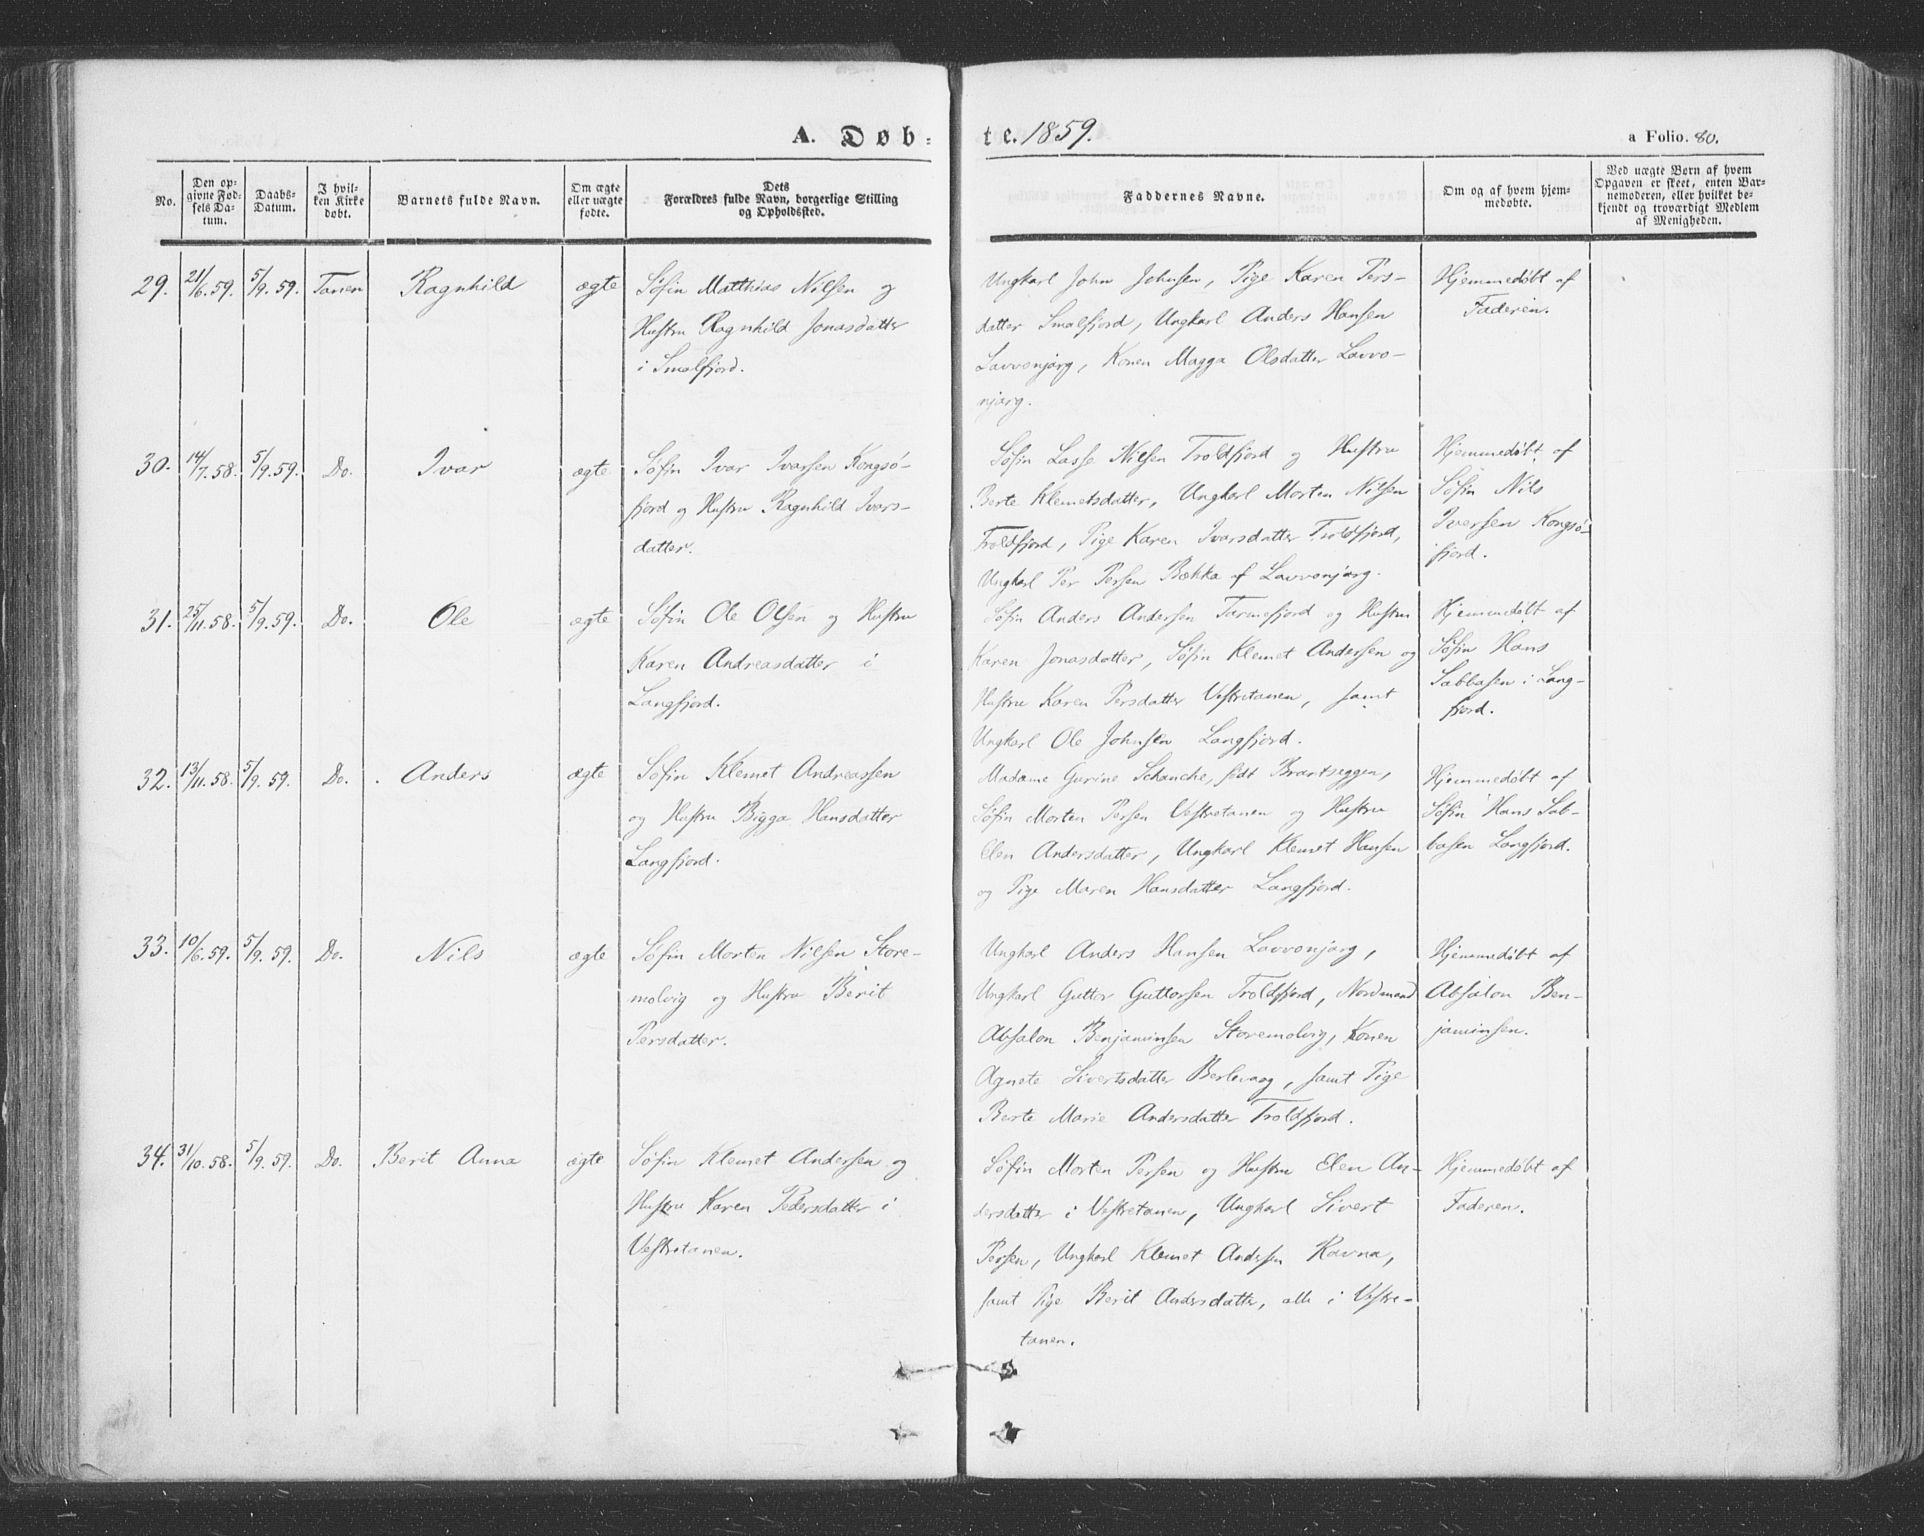 A. Døb-
te. 1859.
a Folio. 80.
No.
Den op-
givne Fød-
sels Da-
tum.
Daabs-
Datum.
I hvil-
ken Kirke
døbt.
Barnets fulde Navn.
Om ægte
eller uægte
fødte.
Dets
Forældres fulde Navn, borgerlige Stilling
og Opholdssted.
Faddernes Navne.
Om og af hvem hjem-
medøbte.
Ved uægte Børn af hvem
Opgaven er skeet, enten Bar-
nemoderen, eller hvilket be-
kjendt og troværdigt Medlem
af Menigheden.
29. 21/6.59. 5/9.59. Tanen Ragnhild ægte
Søfin Matthias Nilsen og
Hustru Ragnhild Jonasdatter
i Smalfjord.
Ungkarl John Johnsen, Pige Karen Pers-
datter Smalfjord, Ungkarl Anders Hansen
Lavvonjarg, Konen Magga Olsdatter Lavvo-
njarg.
Hjemmedøbt af
Faderen.
30. 14/7.58. 5/9.59. Do. Ivar ægte
Søfin Ivar Ivarsen Kongsø-
fjord og Hustru Ragnhild Ivars-
datter.
Søfin Lasse Nilsen Troldfjord og Hustru
Berte Klemetsdatter, Ungkarl Morten Nilsen
Troldfjord, Pige Karen Ivarsdatter Troldfjord,
Ungkarl Per Persen Bækka af Lavvonjarg.
Hjemmedøbt af
Søfin Nils
Iversen Kongsø-
fjord.
31. 25/11.58. 5/9.59. Do. Ole ægte
Søfin Ole Olsen og Hustru
Karen Andreasdatter i
Langfjord.
Søfin Anders Andersen Tarmefjord og Hustru
Karen Jonasdatter, Søfin Klemet Andersen og
Hustru Karen Persdatter Vestretanen, samt
Ungkarl Ole Johnsen Langfjord.
Hjemmedøbt af
Søfin Hans
Sabbasen i Lang-
fjord.
32. 13/11.58. 5/9.59. Do. Anders ægte
Søfin Klemet Andreassen
og Hustru Bigga Hansdatter
Langfjord.
Madame Gurine Schanche, født Brartseggen,
Søfin Morten Persen Vestretanen og Hustru
Elen Andersdatter, Ungkarl Klemet Hansen
og Pige Maren Hansdatter Langfjord.
Hjemmedøbt af
Søfin Hans Sab-
basen Langfjord.
33. 10/6.59. 5/9.59. Do. Nils ægte
Søfin Morten Nilsen Store-
molvig og Hustru Berit
Persdatter.
Ungkarl Anders Hansen Lavvonjarg,
Ungkarl Guttor Guttorsen Troldfjord, Nordmand
Absalon Benjaminsen Storemolvig, Konen
Agnete Sivertsdatter Berlevaag, samt Pige
Berte Marie Andersdatter Troldfjord.
Hjemmedøbt af
Absalon Ben-
jaminsen.
34. 31/10.58. 5/9.59. Do. Berit Anna ægte
Søfin Klemet Andersen og
Hustru Karen Pedersdatter i
Vestretanen.
Søfin Morten Persen og Hustru Elen An-
dersdatter i Vestretanen, Ungkarl Sivert
Persen, Ungkarl Klemet Andersen Ravna,
samt Pige Berit Andersdatter, alle i Vestre-
tanen.
Hjemmedøbt af
Faderen.